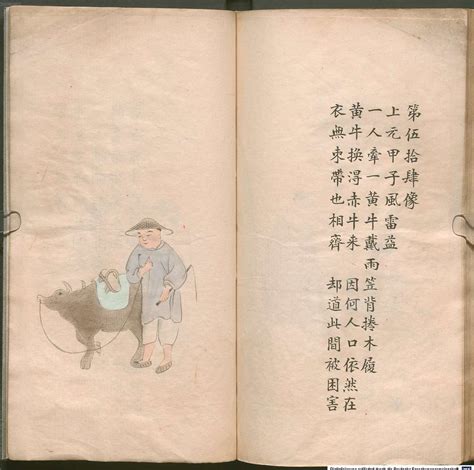 第伍拾肆像
上元甲子風雷益
一人牽一黃牛戴雨笠背捲木履
黃牛換得赤牛来 因何人口依然在
衣無束帶也相齊 却道此間被困害